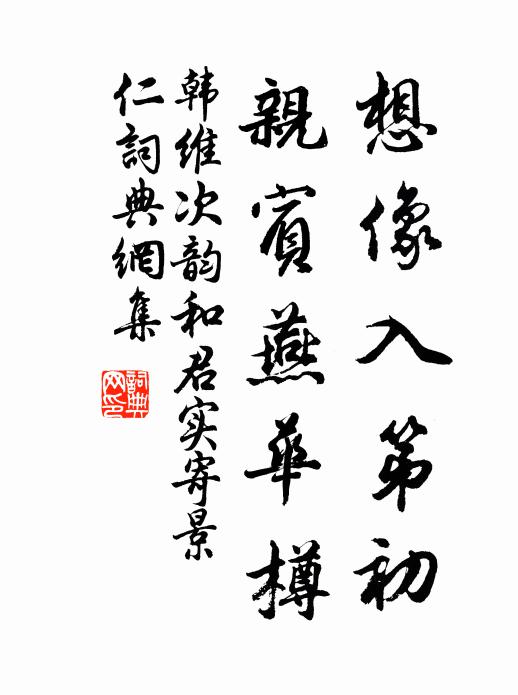 想像入第初
親賓燕華樽
韩維次韵和君实寄景
仁詞典網集
詞典
网印